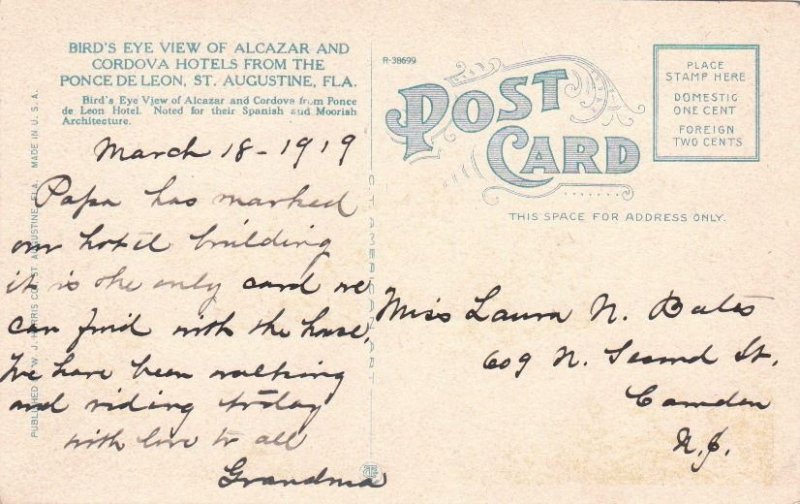 BIRD'S EYE VIEW OF ALCAZAR AND
CORDOVA HOTELS FROM THE
PONCE DE LEON, ST. AUGUSTINE, FLA.
Bird's Eye View of Alcazar and Cordova from Ponce
de Leon Hotel. Noted for their Spanish and Moorish
Architecture.
March 18-1919
Papa has marked
our hotel building
it is the only card we
can find with the house,
We have been walking
and riding today
with love to all
Grandma
PUBLISHED BY W. J. HARRIS CO., ST. AUGUSTINE, FLA. MADE IN U. S. A.
C.T. AMERICAN ART
R-38699
POST
CARD
THIS SPACE FOR ADDRESS ONLY.
PLACE
STAMP HERE
DOMESTIC
ONE CENT
FOREIGN
TWO CENTS
Miss Laura N. Bates
609 N. Second St.
Camden
N.J.